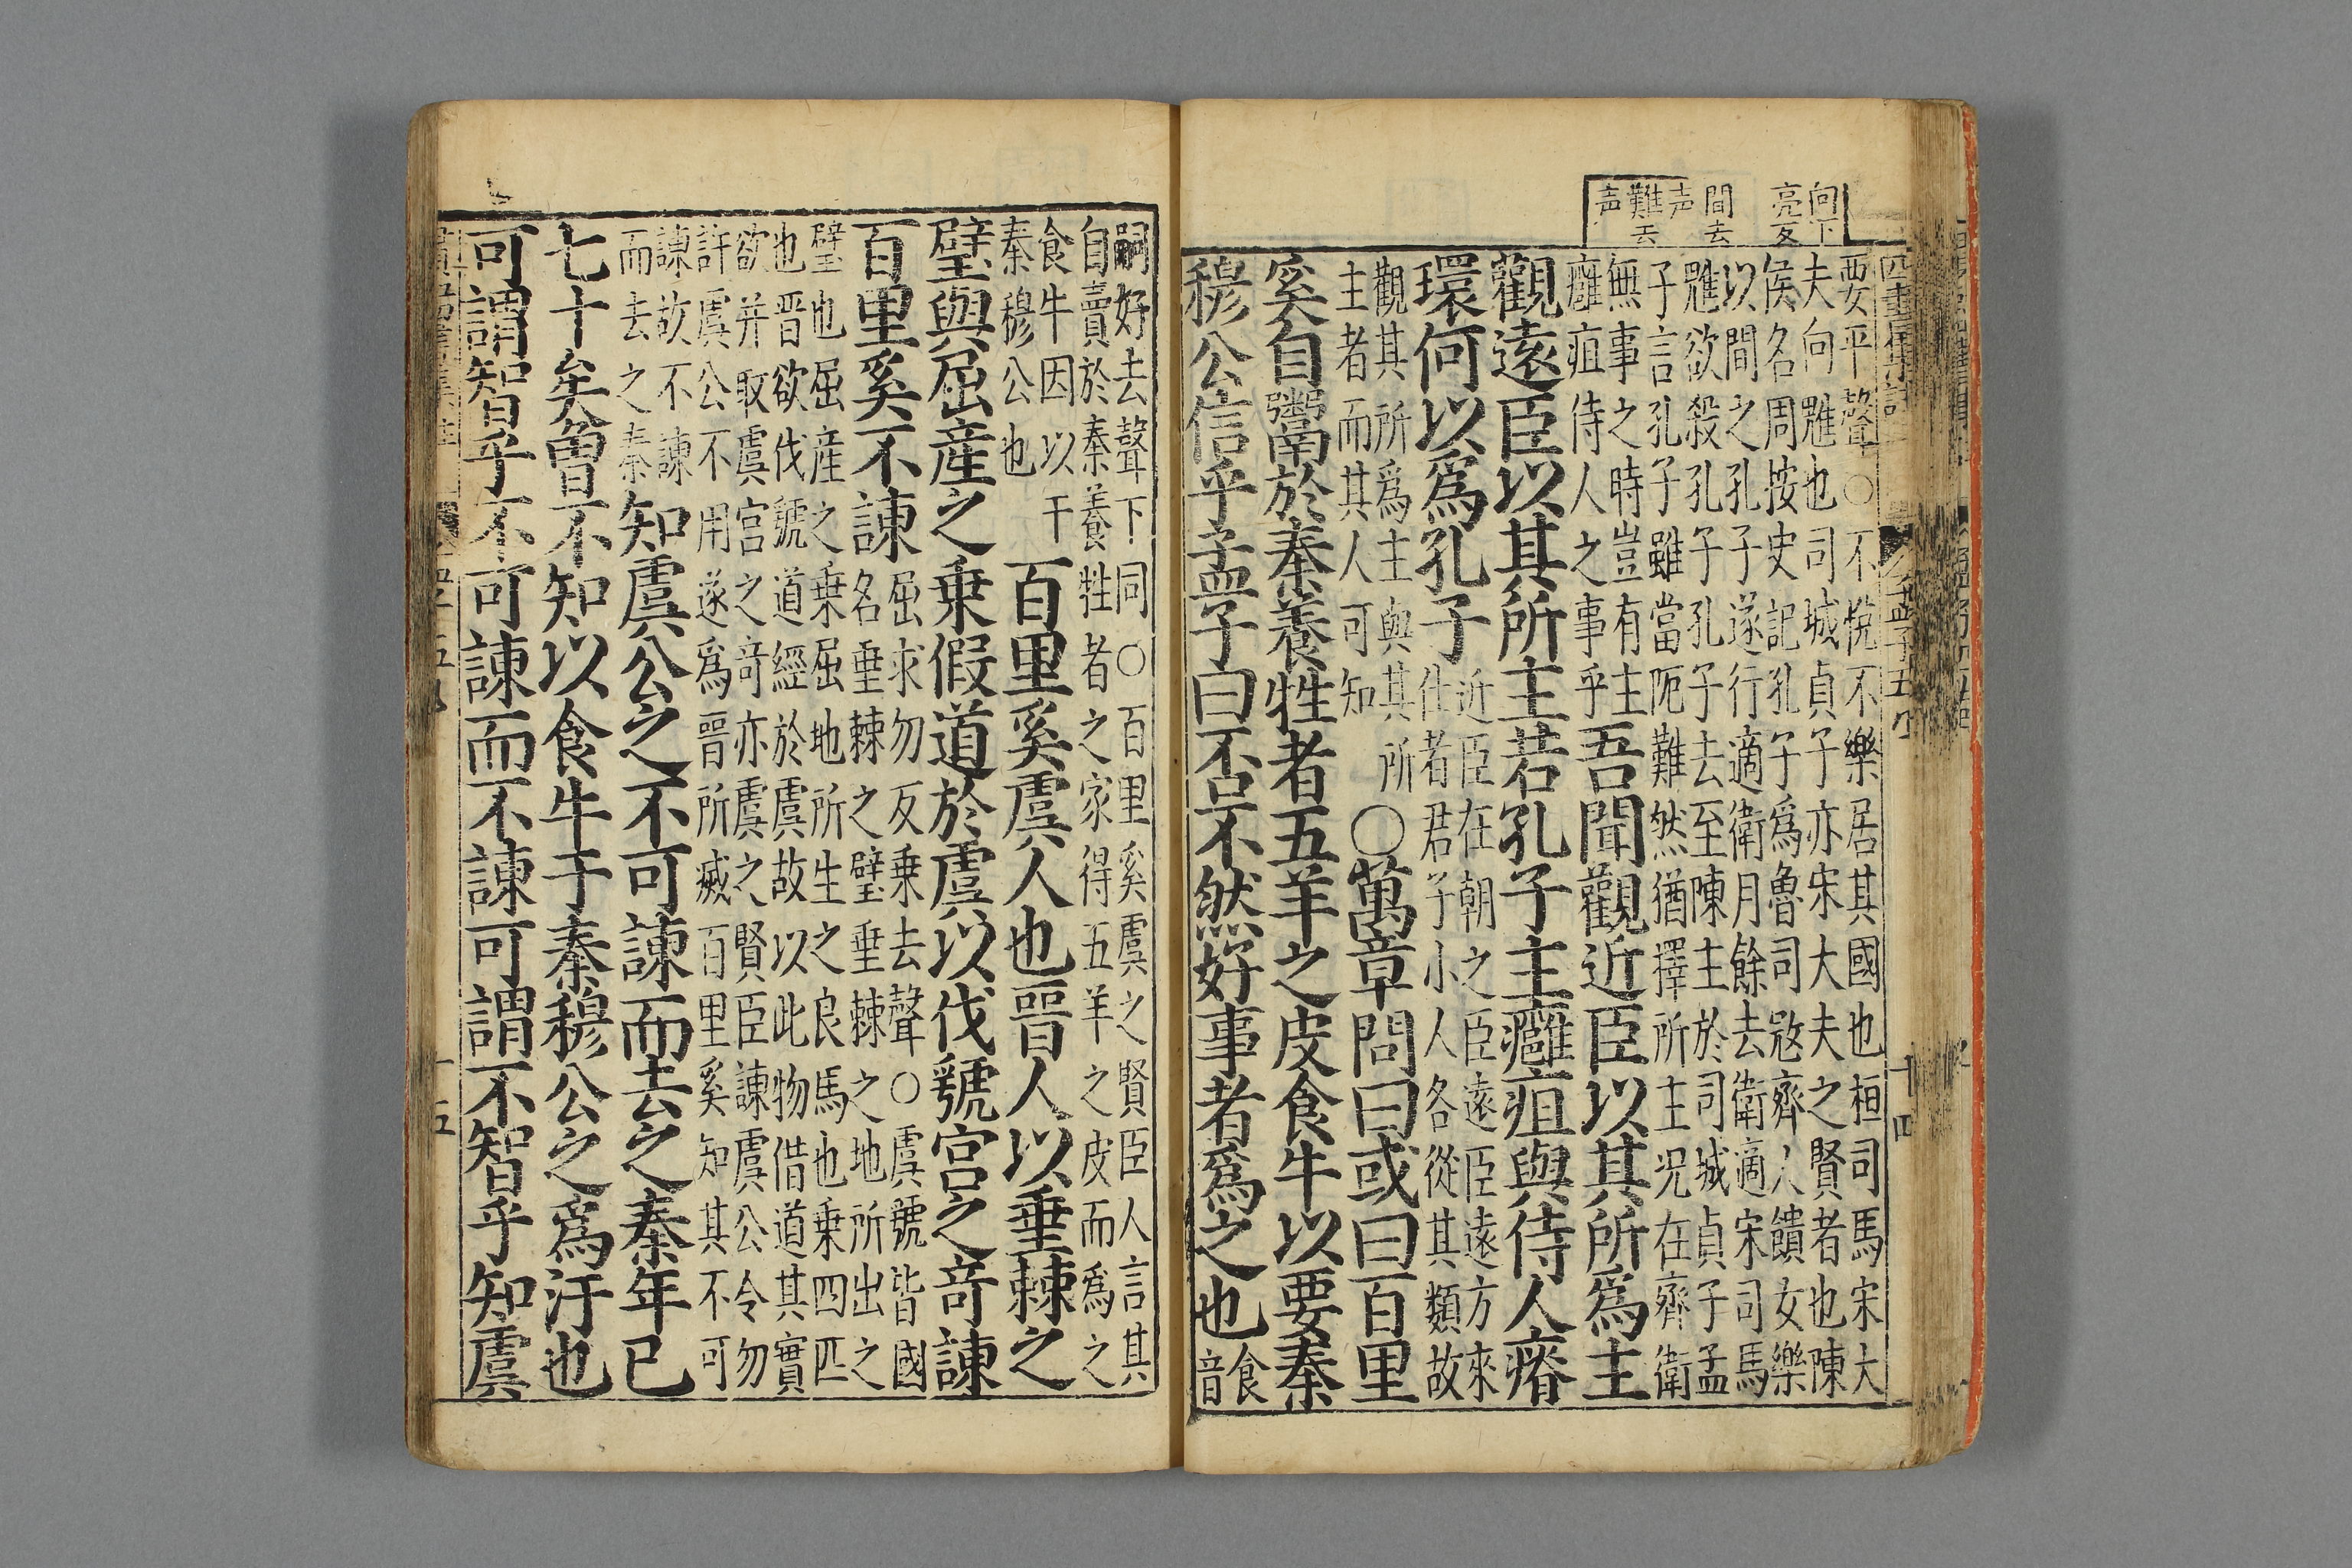 向下
亮反
間去
声
難去
声
四書集註
孟子五
十四
要平聲○不悅不樂居其國也桓司馬宋大
夫向魋也司城貞子亦宋大夫之賢者也陳
侯名周按史記孔子爲魯司寇齊人饋女樂
以間之孔子遂行適衛月餘去衛適宋司馬
魋欲殺孔子孔子去至陳主於司城貞子孟
子言孔子雖當阨難然猶擇所主況在齊衛
無事之時豈有主
癰疽侍人之事乎
吾聞觀近臣以其所爲主
觀遠臣以其所主若孔子主癰疽與侍人瘠
環何以爲孔子
近臣在朝之臣遠臣遠方來
仕者君子小人各從其類故
觀其所爲主與其所
主者而其人可知
○萬章問曰或曰百里
奚自鬻於秦養牲者五羊之皮食牛以要秦
穆公信乎孟子曰否不然好事者爲之也
食
音
嗣好去聲下同○百里奚虞之賢臣人言其
自賣於秦養牲者之家得五羊之皮而爲之
食牛因以干
秦穆公也
百里奚虞人也晋人以垂棘之
璧與屈産之乗假道於虞以伐虢宮之竒諫
百里奚不諫
屈求勿反乗去聲○虞虢皆國
名垂棘之璧垂棘之地所出之
璧也屈産之乗屈地所生之良馬也乗四匹
也晋欲伐虢道經於虞故以此物借道其實
欲并取虞宮之竒亦虞之賢臣諫虞公令勿
許虞公不用遂爲晋所滅百里奚知其不可
諫故不諫
而去之秦
知虞公之不可諫而去之秦年已
七十矣曾不知以食牛于秦穆公之爲汙也
可謂智乎不可諫而不諫可謂不智乎知虞
十五